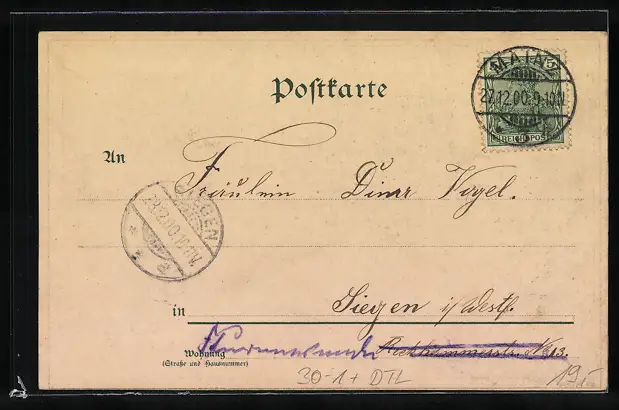 Postkarte
MAINZ
27.12.00.9-10N.
REICHSPOST
5
An
Fräulein Dina Vogel.
SIEGEN
28.12.00.10-11V.
in Siegen i/Westf.
Wohnung
(Straße und Hausnummer)
30-1+ DTL